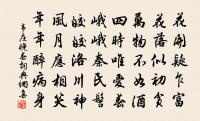 花開疑乍富
花落似初貧
萬物不如酒
四時唯愛春
峨峨秦氏髻
皎皎洛川神
風月應相笑
年年醉病身
韋莊晚春詞典網集